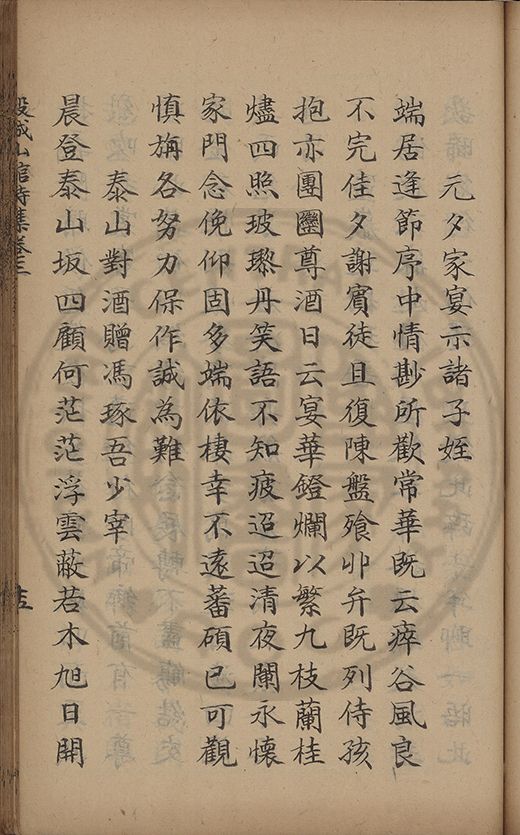 元夕家宴示諸子姪
端居逢節序中情尠所歡常華既云瘁谷風良
不完佳夕謝賓徒且復陳盤飱丱弁既列侍孩
抱亦團圞尊酒日云宴華鐙爛以繁九枝蘭桂
燼四照玻瓈丹笑語不知疲迢迢清夜闌永懷
家門念俛仰固多端依棲幸不遠蕃碩已可觀
慎旃各努力保作誠為難
泰山對酒贈馮琢吾少宰
晨登泰山坂四顧何茫茫浮雲蔽若木旭日開
穀城山館詩集卷三
十五